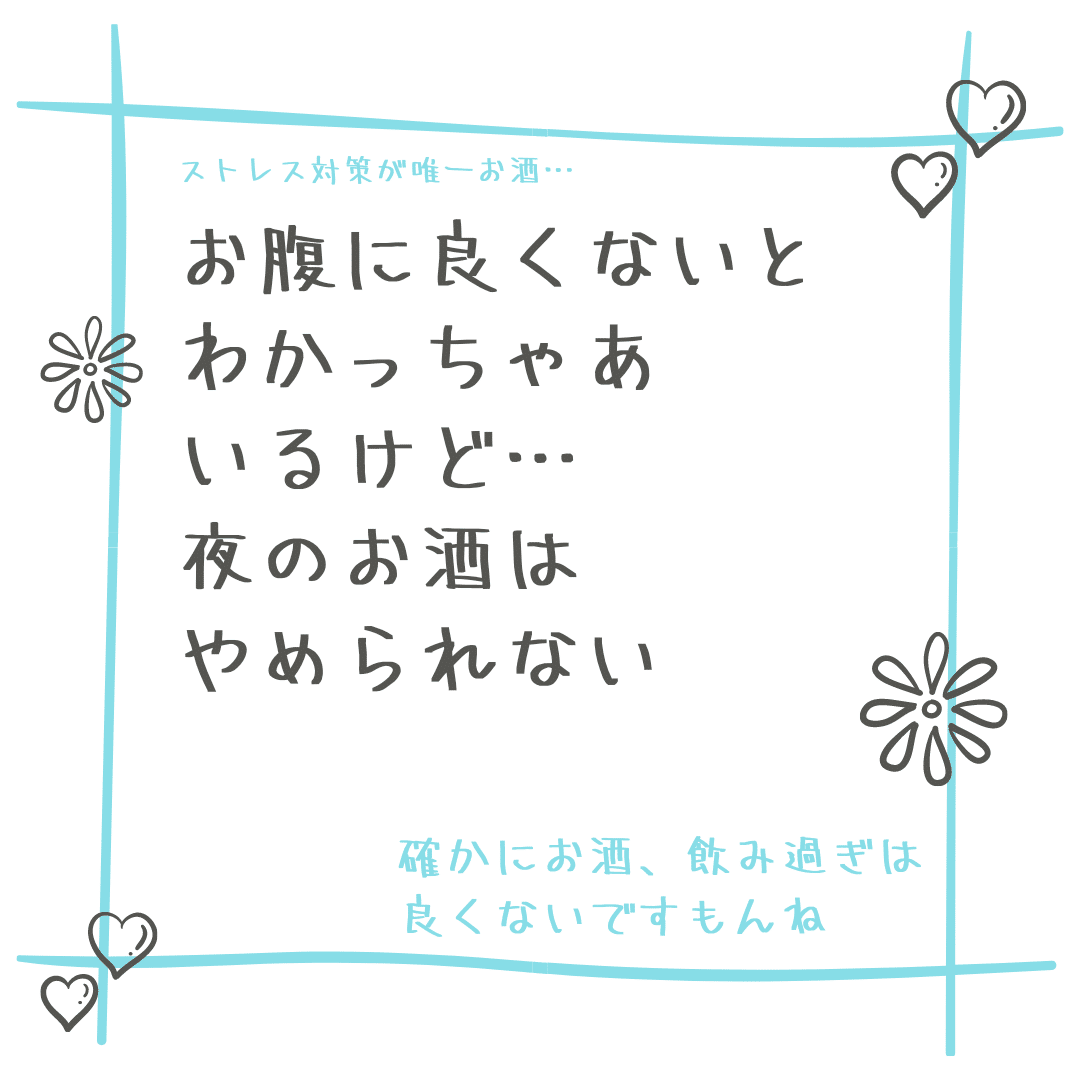 ストレス対策が唯一お酒…
お腹に良くないと
わかっちゃあ
いるけど…
夜のお酒は
やめられない
確かにお酒、飲み過ぎは
良くないですもんね